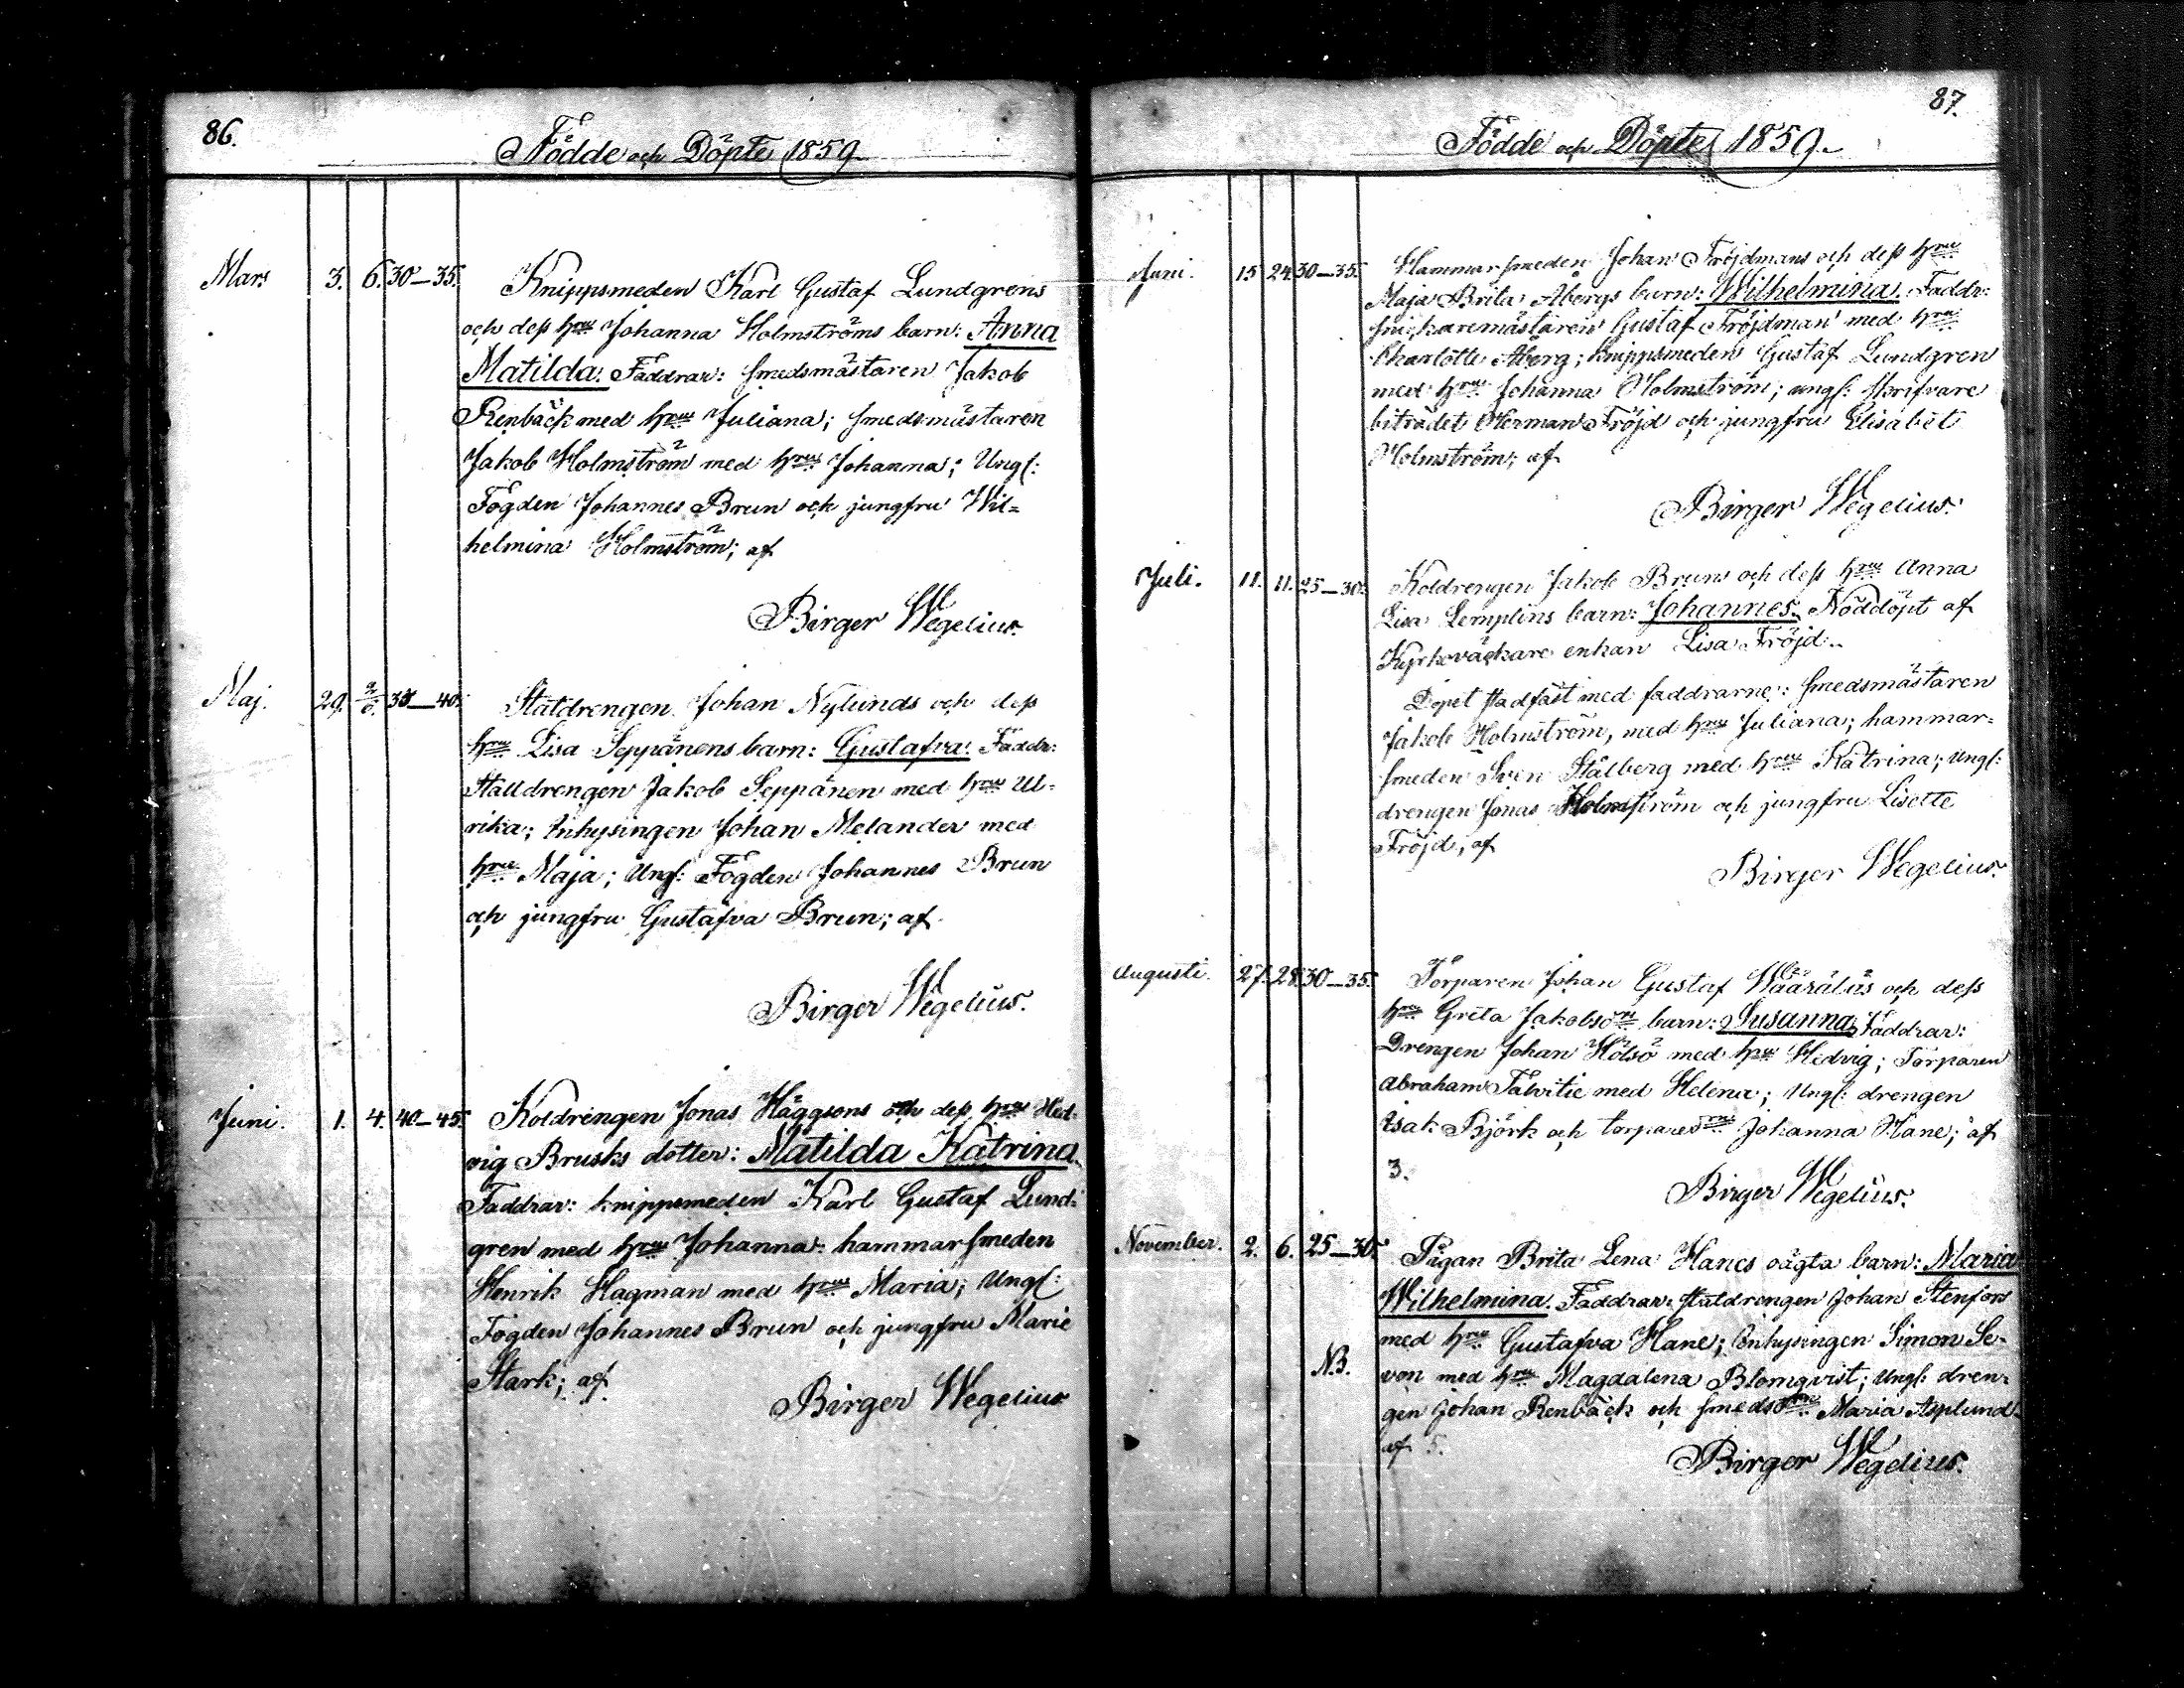 86.
Födde och Döpte 1859.
Mars 3. 6. 30–35. Knippsmeden Karl Gustaf Lundgrens
och dess hru Johanna Holmströms barn: Anna
Matilda. Faddrar: smedsmästaren Jakob
Renbäck med hru Juliana; smedsmästaren
Jakob Holmström med hru Johanna; Ungl:
Fogden Johannes Brun och jungfru Wil=
helmina Holmström; af
Birger Wegelius.
Maj. 29. 2/6. 35–40. Statdrengen Johan Nylunds och dess
hru Lisa Seppänens barn: Gustafva. Faddr:
Stalldrengen Jakob Seppänen med hru Ul=
rika; Inhysingen Johan Melander med
hru Maja; Ungl: Fogden Johannes Brun
och jungfru Gustafva Brun; af
Birger Wegelius.
Juni. 1. 4. 40–45. Koldrengen Jonas Häggsons och dess hru Hed-
vig Brusks dotter: Matilda Katrina.
Faddrar: knippsmeden Karl Gustaf Lund-
gren med hru Johanna; hammarsmeden
Henrik Hagman med hru Maria; Ungl:
Fogden Johannes Brun och jungfru Marie
Stark; af
Birger Wegelius
87.
Födde och Döpte 1859.
Juni. 15 24 30–35. Hammarsmeden Johan Fröjdmans och dess hru
Maja Brita Åbergs barn: Wilhelmina. Faddr:
snickaremästaren Gustaf Fröjdman med hru
Charlotte Åberg; knippsmeden Gustaf Lundgren
med hru Johanna Holmström; ungl: skrifvare
biträdet Herman Fröjd och jungfru Elisabet
Holmström; af
Birger Wegelius.
Juli. 11. 11. 25–30. Koldrengen Jakob Bruns och dess hru Anna
Lisa Lemplins barn: Johannes. Nöddöpt af
Kyrkoväckare enkan Lisa Fröjd.
Dopet stadfäst med faddrarne: smedsmästaren
Jakob Holmström, med hru Juliana; hammar=
smeden Sven Stålberg med hru Katrina; Ungl:
drengen Jonas Holmström och jungfru Lisette
Fröjd; af
Birger Wegelius.
Augusti. 27. 28. 30–35. Torparen Johan Gustaf Wääräläs och dess
hru Greta Jakobsdri barn: Susanna. Faddrar:
Drengen Johan Hölsö med hru Hedvig; Torparen
Abraham Talvitie med Helena; Ungl: drengen
Isak Björk och torparedrn Johanna Hane; af
3.
Birger Wegelius.
November. 2. 6. 25–30. Pigan Brita Lena Hanes oägta barn: Maria
Wilhelmina. Faddrar: statdrengen Johan Stenfors
med hru Gustafva Hane; Inhysingen Simon Se-
N.B. von med hru Magdalena Blomqvist; Ungl: dren-
gen Johan Renbäck och smedsdrn Maria Asplund
af 5.
Birger Wegelius.